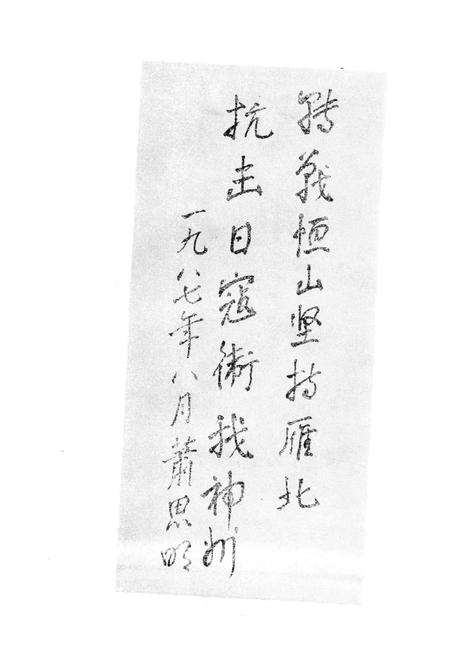 转战恒山坚持雁北
抗击日寇衛我神州
一九八七年八月蕭思明